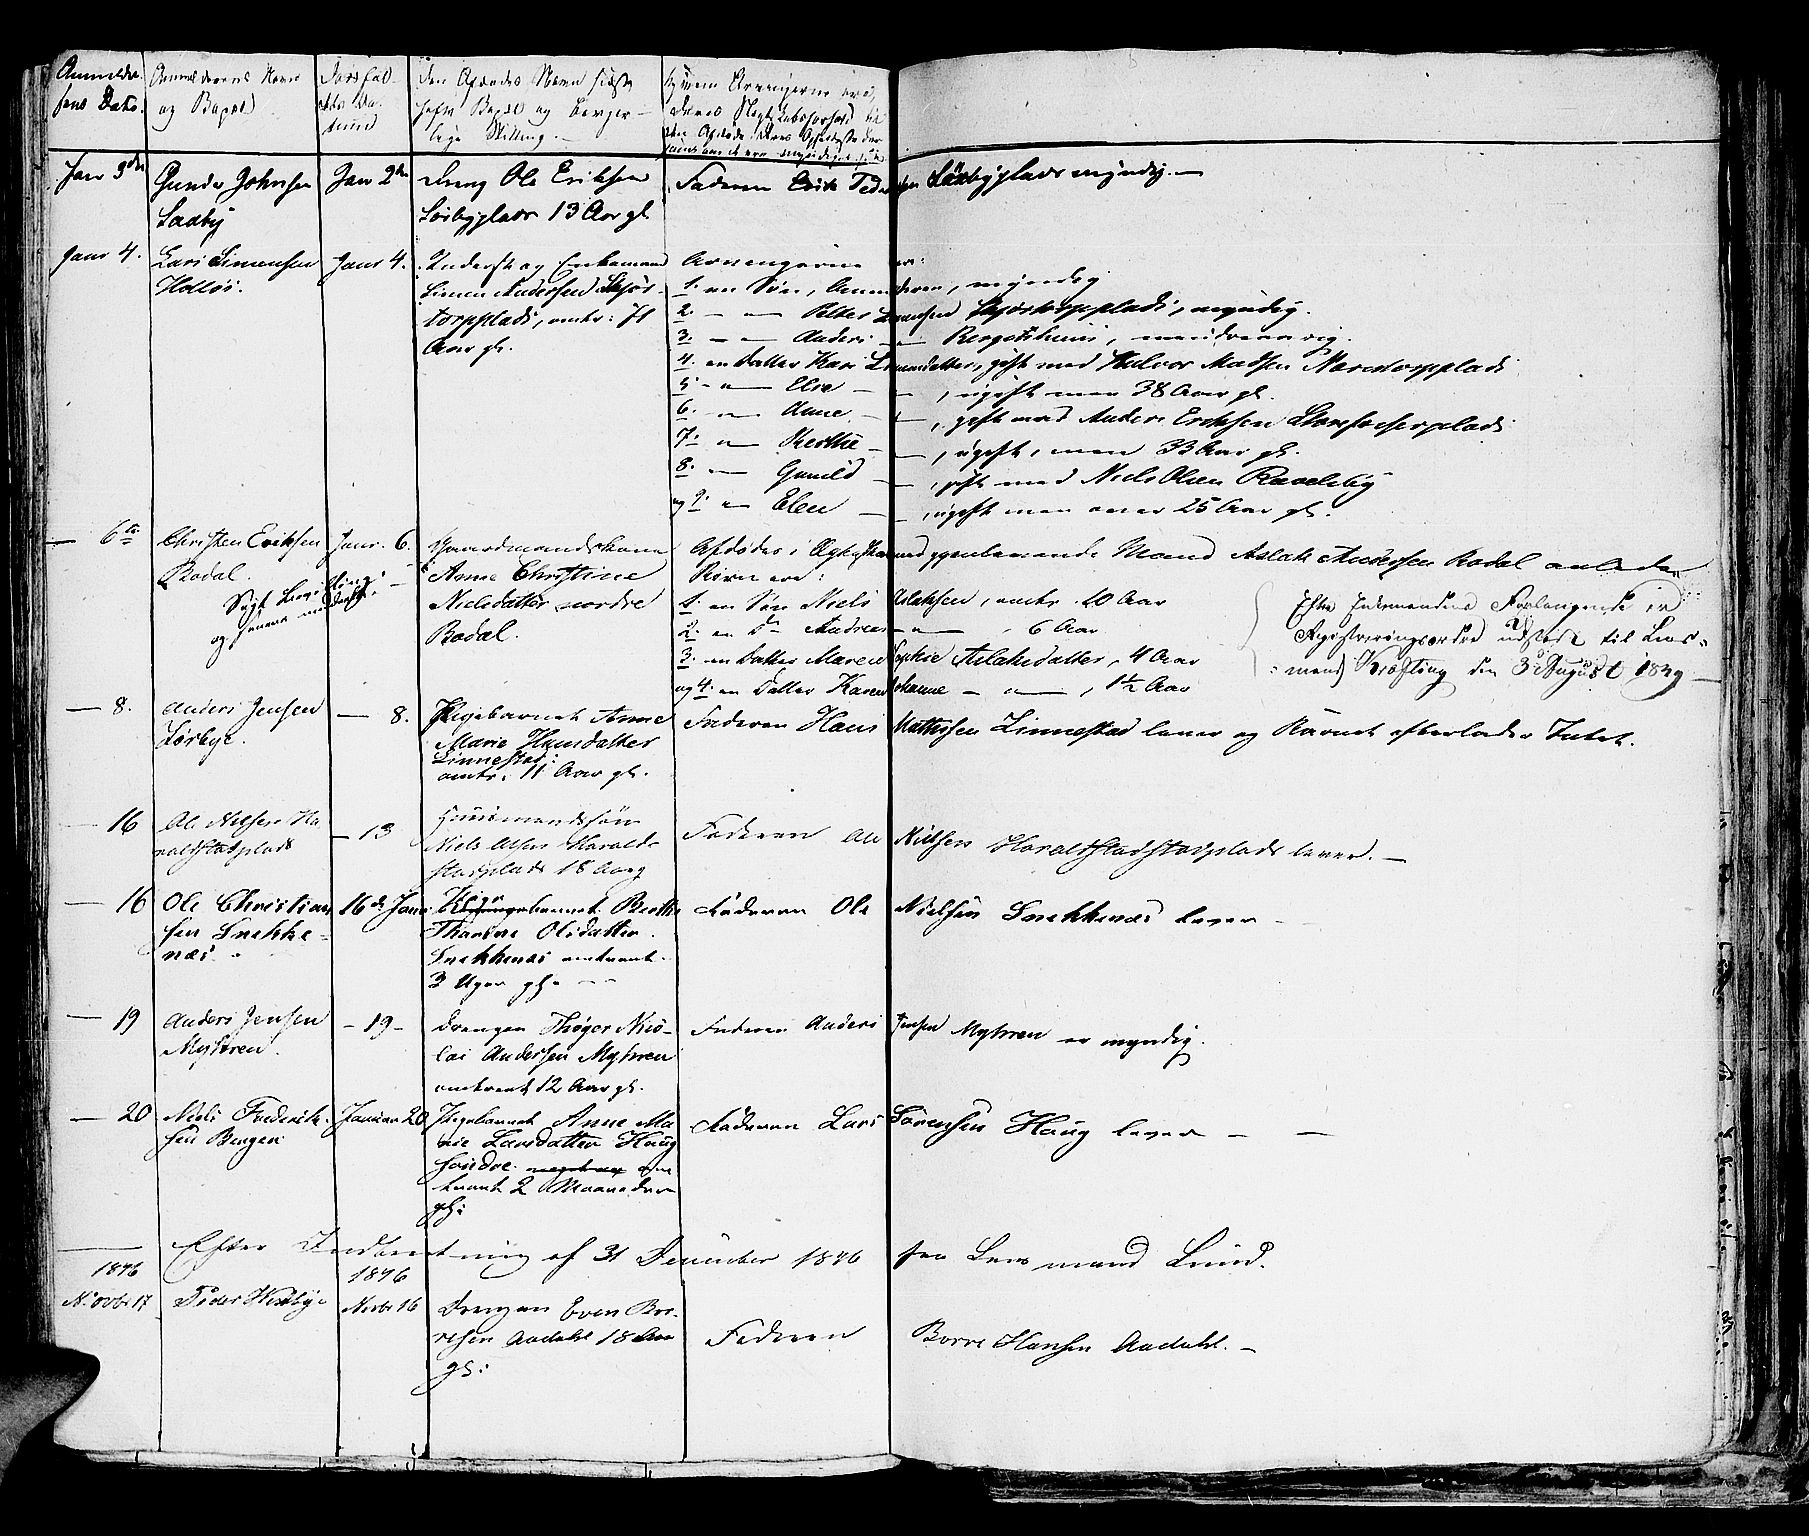 Anmeldel-
sens Dato.
Anmelderens Navn
og Bopæl
Dødsfal-
dets Da-
tum
den Afdødes Navn sidste
Bopæl og borger-
lige Stilling.
hvem Arvingerne ere,
deres
Janr 3die
Gunder Johnsen
Saxby
Jan 2den
dreng Ole Eriksen
13 Aar gl.
Faderen Erik Peder
sen myndig. —
Janr 4.
Lars Simensen
Holtøs.
Janr 4.
Enkemand
Simen Andersen Skjør-
torpplads, omtr: 71
Aar gl.
Arvingerne ere:
1. en Søn, Anmelderen, myndig
2. — — Peder Simensen Skjørtorpplads, myndig.
3. — — Anders — —
4. en Datter Kari Simensdatter, gift med Halvor Madsen
5 — — Else — — , ugift men 38 Aar gl.
6. — — Anne — — , gift med Anders Eriksen
7. — — Berthe — — , ugift, men 33 Aar gl.
8. — — Gunild — — , gift med Niels Olsen
og 9. — Elen — — , ugift men over 25 Aar gl.
— 6te
Christen Eriksen
Bodal.
Janr. 6.
Gaardmandskone
Anne Christine
Nielsdatter nordre
Bodal.
Afdødes i gjenlevende Mand Aslak Andersen Bodal
Børn ere:
1. en Søn Niels Aslaksen, omtr. 20 Aar
2. en Do Andreas — — , 6 Aar
3. en Datter Maren Sophie Aslaksdatter, 4 Aar
og 4. en Datter Karen Johanne — — , 1½ Aar
Efter Enkemandens Forlangende er
Registreringsordre udstedt til Lens-
mand Kræfting den 3 August 1849 —
— 8.
Anders Jensen
Sørbye.
— 8.
Pigebarnet Anne
Marie Hansdatter
Linnestad:
omtr. 11 Aar gl.
Faderen Hans Mathisen Linnestad lever og Barnet efterlader Intet.
— 16
Ole Nilsen Ha-
raldstadplads
— 13
Huusmandssøn
Niels Olsen Harald-
stadplads 18 Aar g
Faderen Ole Nilsen lever. —
— 16
Ole Christian
sen Snekke-
næs.
16de Janr
Pige
barnet Berthe
Thorine Olsdatter
Snekkenæs omtrent
3 Uger gl.
Faderen Ole Nielsen Snekkenæs lever —
— 19
Anders Jensen
Mystren.
— 19 —
drengen Thøger Nico-
lai Andersen Mystren
omtrent 12 Aar gl.
Faderen Anders Jensen Mystren er myndig.
— 20
Niels Frederik-
sen Bergen
Januar 20
Pigebarnet Anne Ma-
rie Larsdatter Haug
søndre om
trent 2 Maaneder
gl:
Faderen Lars Sørensen Haug lever — —
Efter Indberetning af 31 December 1846 fra Lensmand Lund.
1846
Novbr 17
Peder
1846
Novbr 16
Drengen Even Bor-
resen Aadahl 18 Aar
gl:
Faderen Borre Hansen Aadahl. —